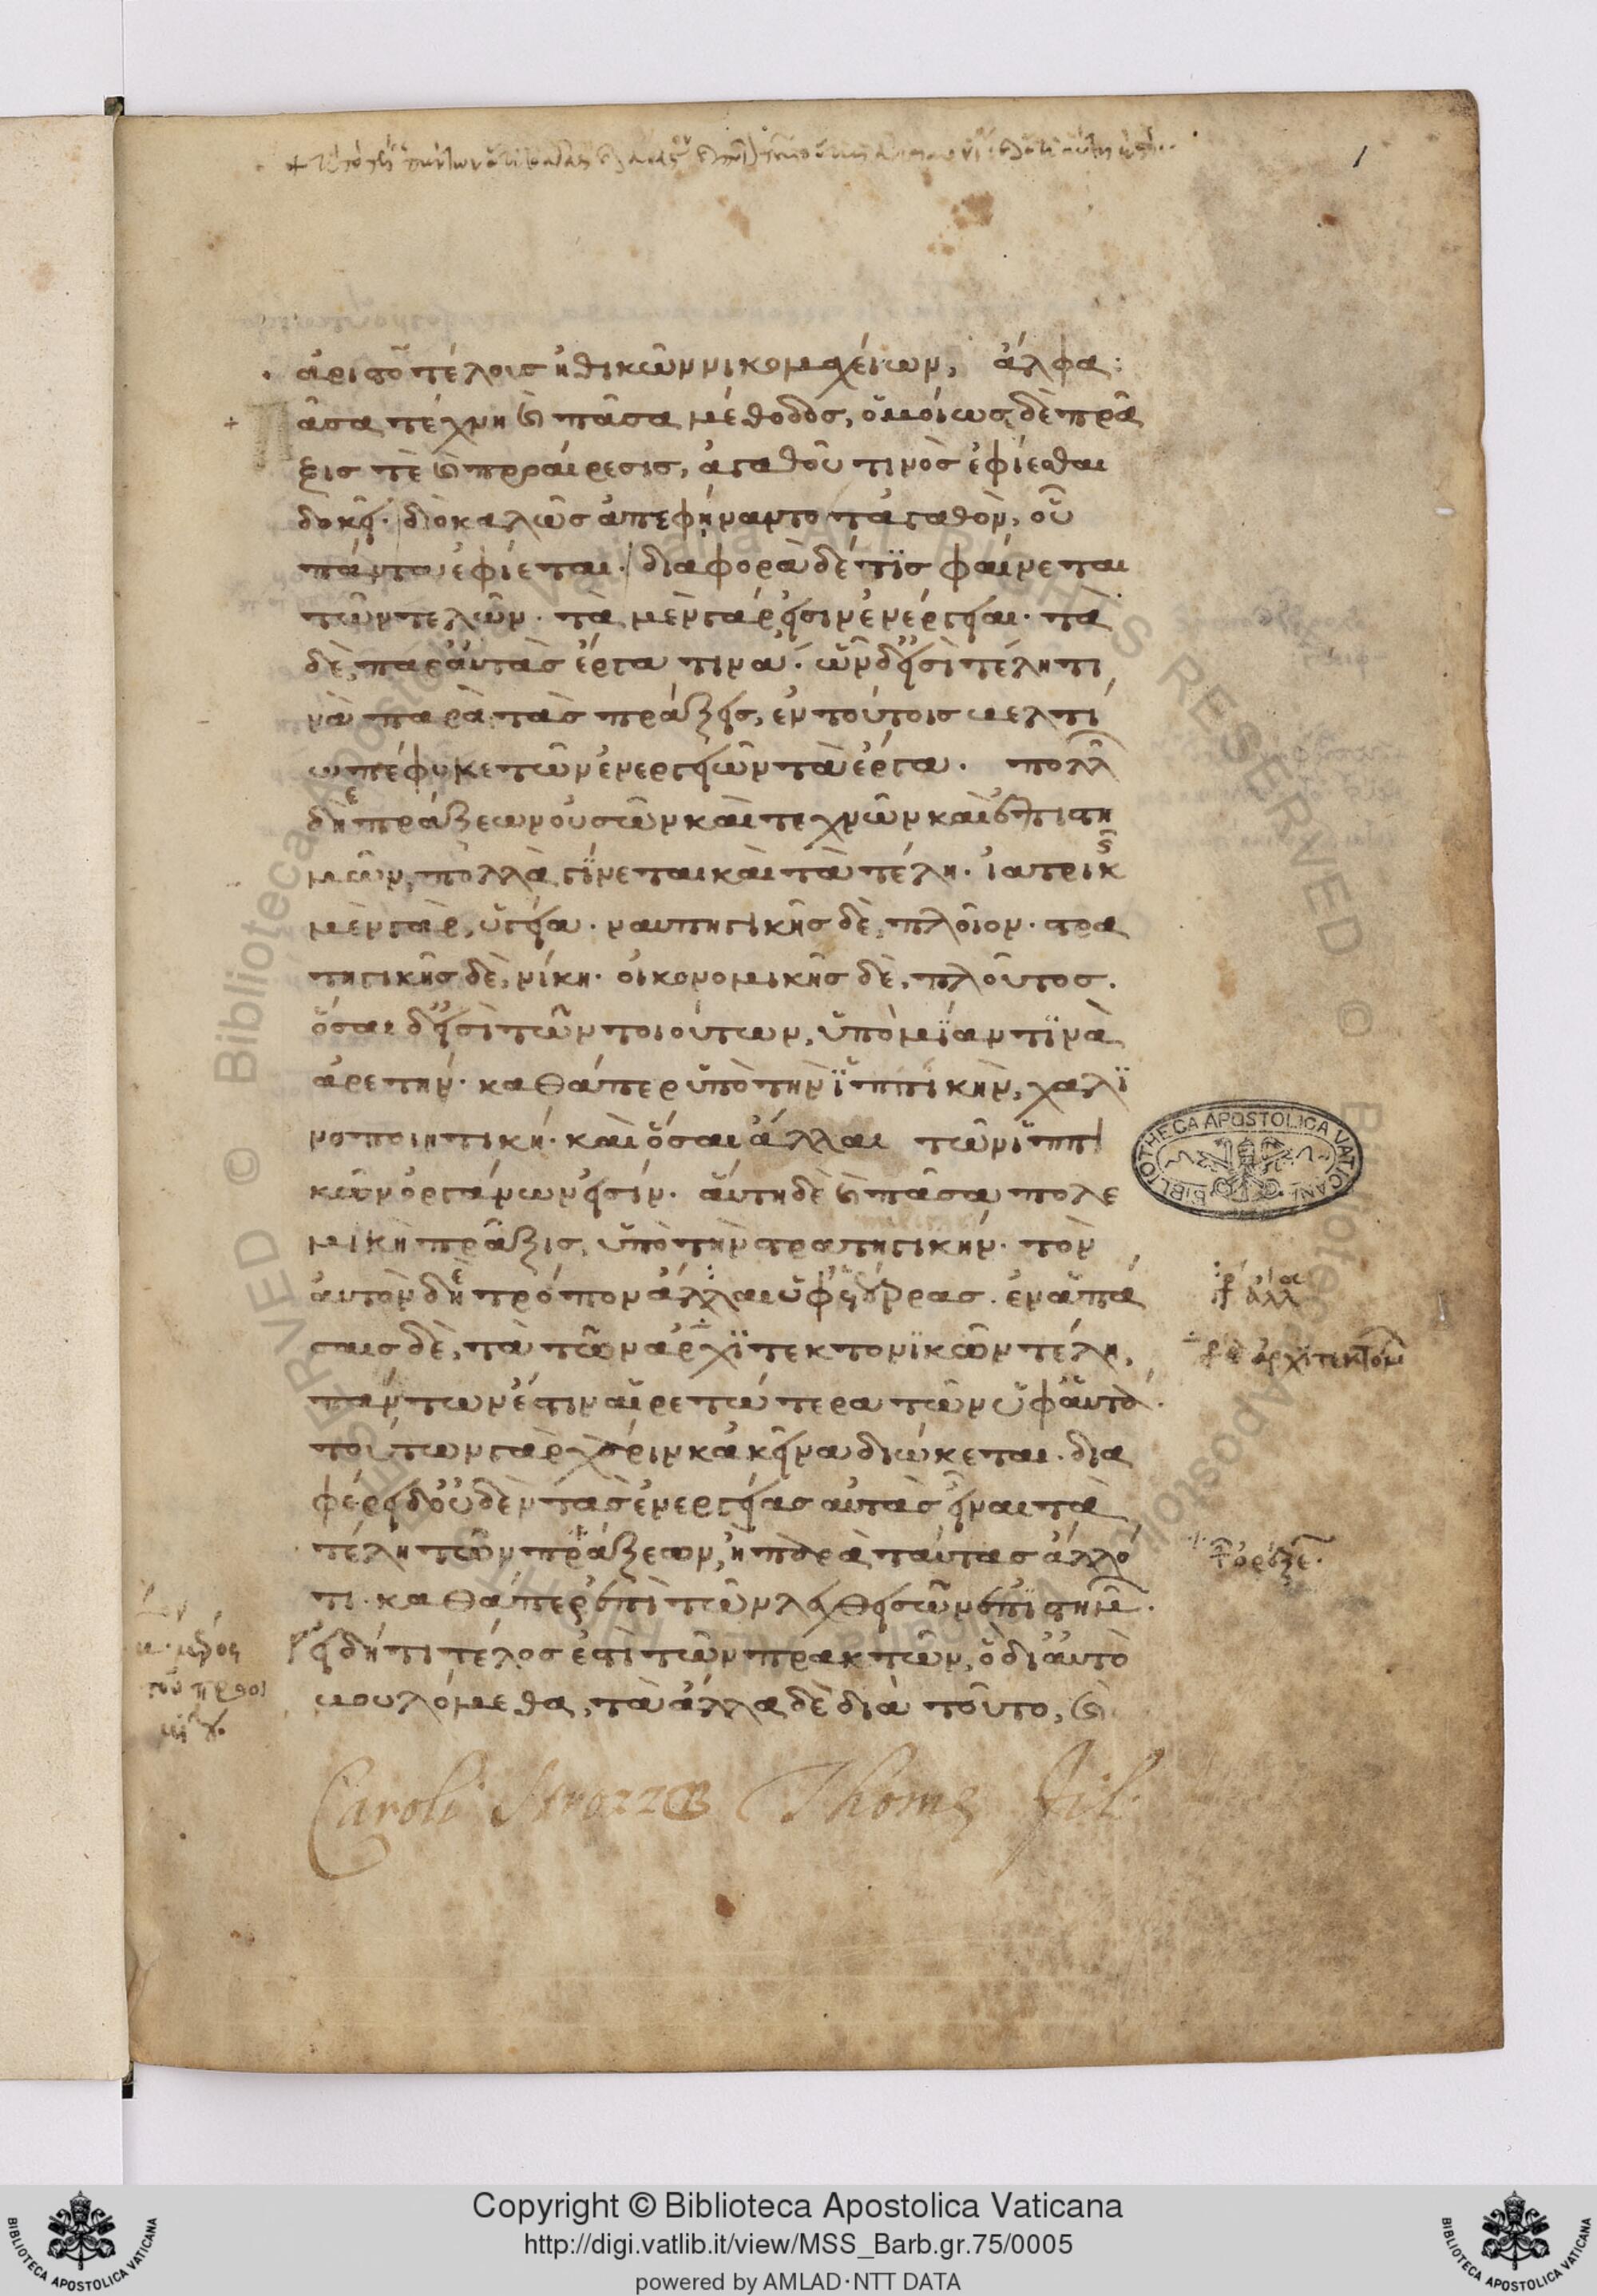 1
ἀριστοτέλους ἠθικῶν νικομαχείων, ἄλφα:
Πᾶσα τέχνη καὶ πᾶσα μέθοδος, ὁμοίως δὲ πρᾶ
ξις τὲ καὶ προαίρεσις, ἀγαθοῦ τινὸς ἐφίεσθαι
δοκεῖ· διὸ καλῶς ἀπεφήναντο τἀγαθὸν, οὗ
πάντα ἐφίεται· διαφορὰ δέ τις φαίνεται
τῶν τελῶν· τὰ μὲν γάρ εἰσιν ἐνέργειαι· τὰ
δὲ, παρ' αὐτὰς ἔργα τινα· ὧν δ' εἰσὶ τέλη τι
νὰ παρὰ τὰς πράξεις, ἐν τούτοις βελτί
ω πέφυκε τῶν ἐνεργειῶν τὰ ἔργα. πολλῶν
δὲ πράξεων οὐσῶν καὶ τεχνῶν καὶ ἐπιστη
μῶν, πολλὰ γίνεται καὶ τὰ τέλη· ἰατρικῆς
μὲν γὰρ, ὑγεία· ναυπηγικῆς δὲ, πλοῖον· στρα
τηγικῆς δὲ, νίκη· οἰκονομικῆς δὲ, πλοῦτος.
ὅσαι δ' εἰσὶ τῶν τοιούτων, ὑπὸ μίαν τινὰ
ἀρετήν· καθάπερ ὑπὸ τὴν ἱππικὴν, χαλι
νοποιητική· καὶ ὅσαι ἄλλαι τῶν ἱππι
κῶν ὀργάνων εἰσίν· αὕτη δὲ καὶ πᾶσα πολε
μικὴ πρᾶξις, ὑπὸ τὴν στρατηγικήν· τὸν
αὐτὸν δὲ τρόπον ἄλλαι ὑφ' ἑτέρας. ἐν ἁπά
σαις δὲ, τὰ τῶν ἀρχιτεκτονικῶν τέλη,
πάντων ἐστὶν αἱρετώτερα τῶν ὑφ' αὑτὰ.
τούτων γὰρ χάριν κἀκεῖνα διώκεται. δια
φέρει δ' οὐδὲν τὰς ἐνεργείας αὐτὰς εἶναι τὰ
τέλη τῶν πράξεων, ἢ παρὰ ταύτας ἄλλό
τι· καθάπερ ἐπὶ τῶν λεχθεισῶν ἐπιστημῶν.
εἰ δή τι τέλος ἐστὶ τῶν πρακτῶν, ὃ δι' αὑτὸ
βουλόμεθα, τὰ ἄλλα δὲ διὰ τοῦτο, καὶ
Caroli Strozzæ Thomæ fil.
BIBLIOTHECA APOSTOLICA VATICANA
Copyright © Biblioteca Apostolica Vaticana
http://digi.vatlib.it/view/MSS_Barb.gr.75/0005
powered by AMLAD·NTT DATA
BIBLIOTECA APOSTOLICA VATICANA
BIBLIOTECA APOSTOLICA VATICANA